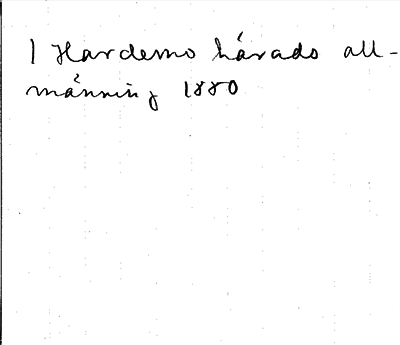 I Hardemo härads all-
männing 1880